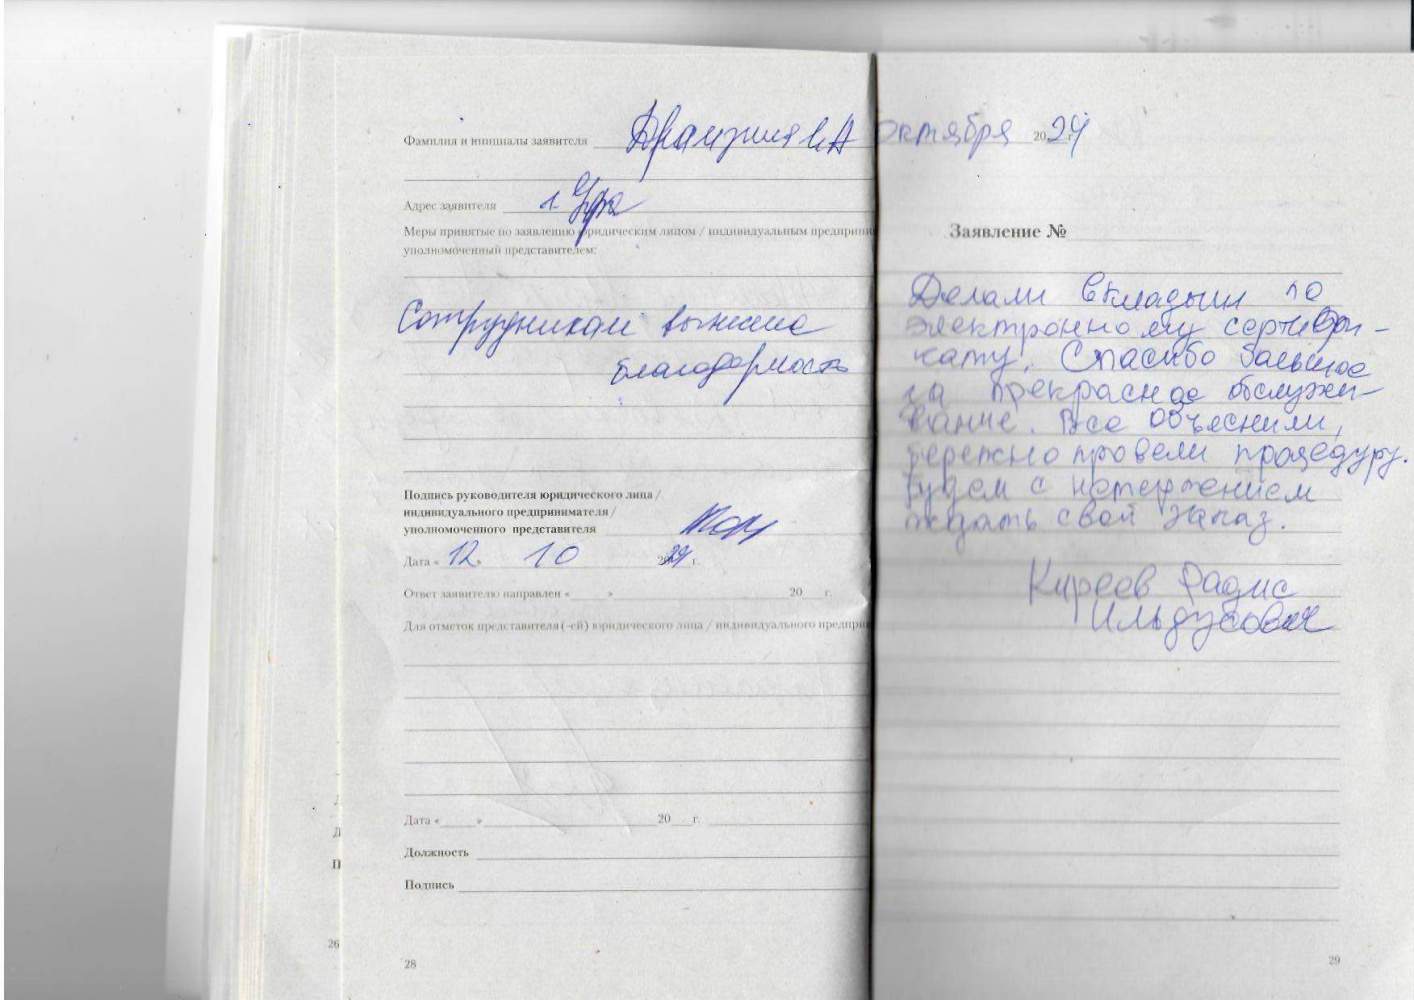 Фамилия и инициалы заявителя
Адрес заявителя г. Уфа
Меры принятые по заявлению юридическим лицом / индивидуальным предприни
уполномоченный представителем:
Сотрудникам вынесена
благодарность
Подпись руководителя юридического лица /
индивидуального предпринимателя /
уполномоченного представителя
Дата « 12 » 10 2024 г.
Ответ заявителю направлен « » 20 г.
Для отметок представителя (-ей) юридического лица / индивидуального предпри
Дата « » 20 г.
Должность
Подпись
28
26
октября 2024
Заявление №
Делали вкладыши по
электронному сертифи-
кату. Спасибо большое
за прекрасное обслужи-
вание. Все объеснили,
бережно провели процедуру.
Будем с нетерпением
ждать свой заказ.
Киреев Радис
Ильдусович
29